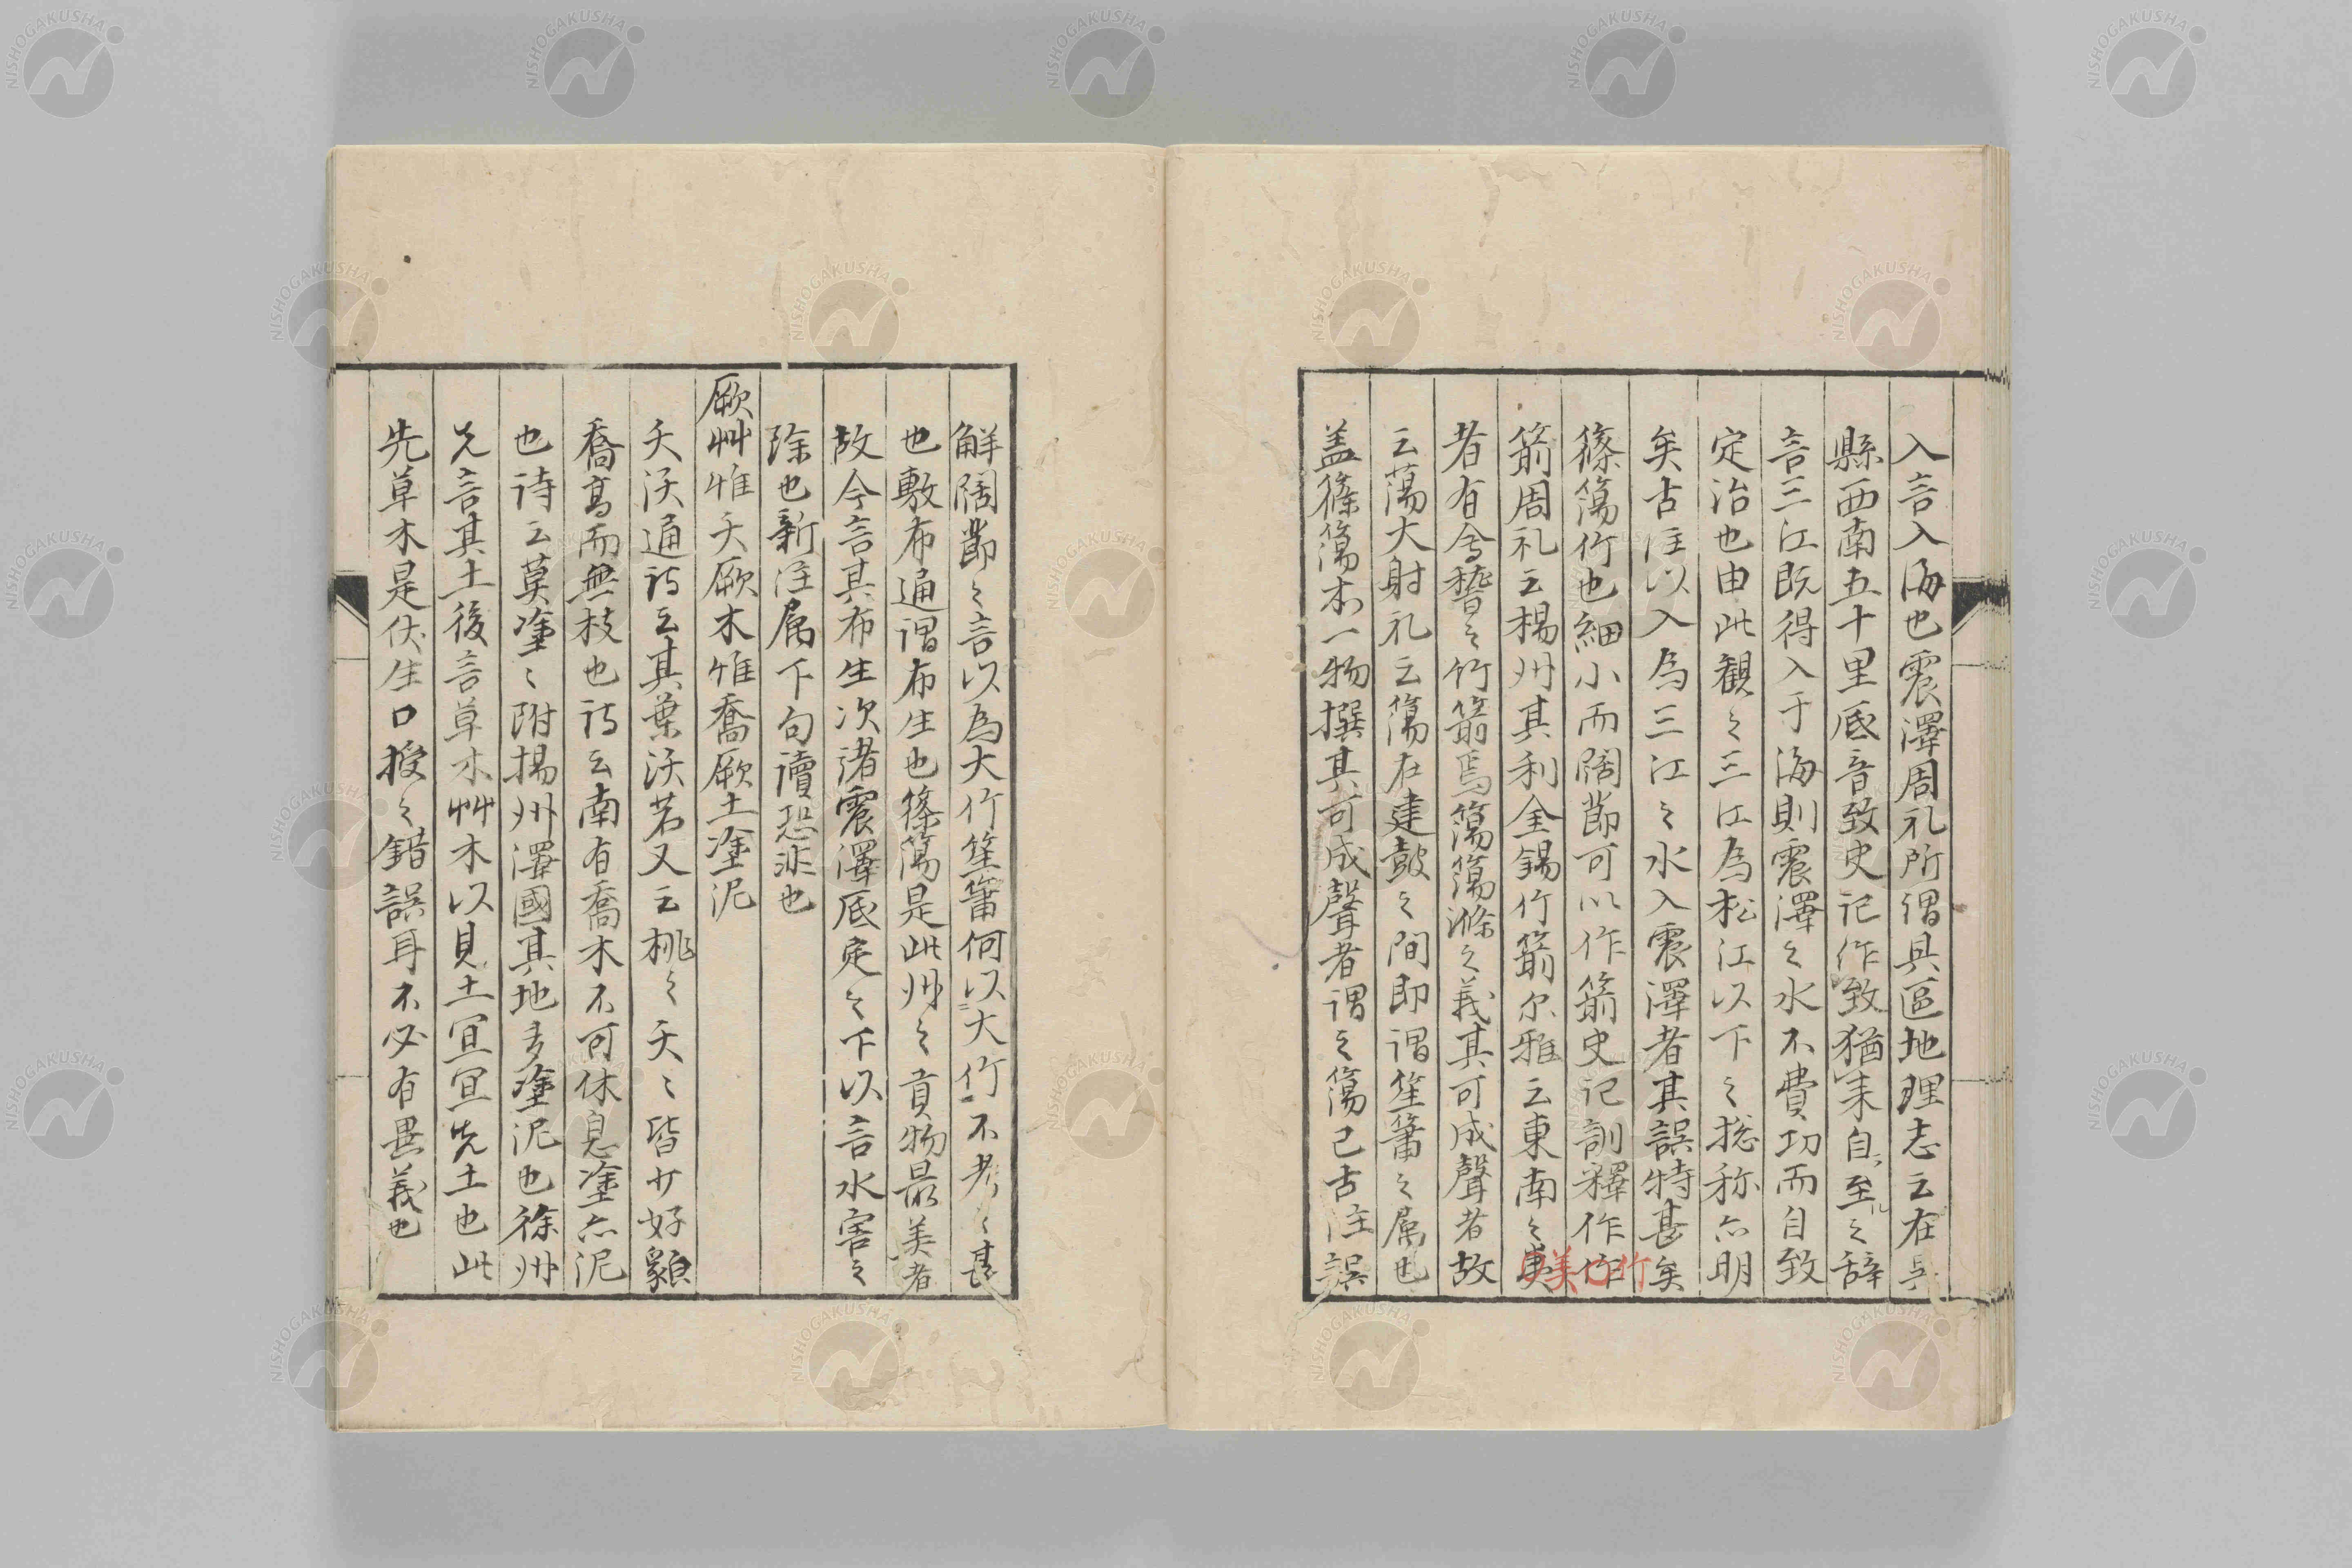 入言入海也震澤周礼所謂具區地理志云在吳
縣西南五十里底音致史記作致猶耒自至之辞
言三江既得入于海則震澤之水不費功而自致
定治也由此観之三江為松江以下之捴称亦明
矣古注以入為三江之水入震澤者其誤特甚矣
篠簜竹也細小而闊節可以作箭史記訓釋作竹
箭周礼云楊州其利金錫竹箭尔雅云東南之美
者有會稽之竹箭焉簜蕩滌之義其可成聲者故
云蕩大射礼云簜在建鼓之間即謂笙簫之属也
盖篠簜本一物撰其可成聲者謂之簜已古注誤
解闊節之言以為大竹笙簫何以大竹不考之甚
也敷布通謂布生也篠簜是此州之貢物最美者
故今言其布生次諸震澤底定之下以言水害之
除也新注属下句讀恐非也
厥艸惟夭厥木惟喬厥土塗泥
夭沃通詩云其葉沃若又云桃之夭々皆廾好貌
喬高而無枝也詩云南有喬木不可休息塗亦泥
也詩云莫塗々附揚州澤國其地多塗泥也徐州
先言其土後言草木艸木以見土冝冝先土也此
先草木是伏生口授之錯誤耳不必有異義也